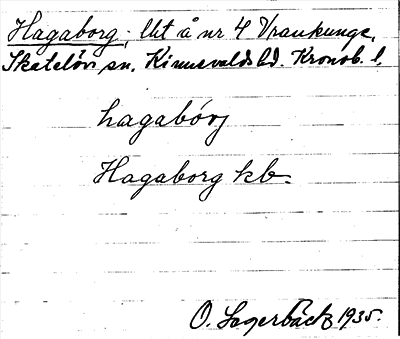 Hagaborg, lht å nr 4 Vrankunge,
Skatelöv sn. Kinnevalds hd. Kronob. l.
hagabórj
Hagaborg kb.
O. Lagerbäck 1935.